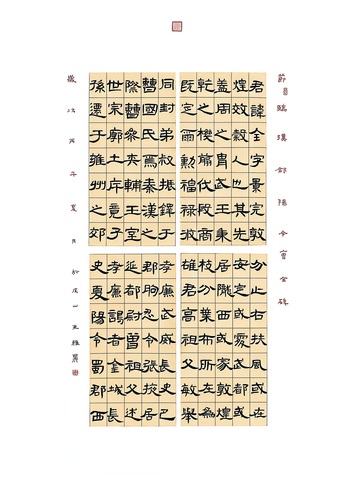 節臨漢郃陽令曹全碑
君諱全字景完敦
煌效穀人也其先
蓋周之胄武王秉
乾之機翦伐殷商
既定爾勳福祿攸
同封弟叔振鐸于
曹國氏焉秦漢之
際曹參夾輔王室
世宗廓土斥竟子
孫遷于雍州之郊
分止右扶風或在
安定或處武都或
居隴西或家敦煌
枝分葉布所在為
雄君高祖父敏舉
孝廉武威長史巴
郡朐忍令張掖居
延都尉曾祖父述
孝廉謁者金城長
史夏陽令蜀郡西
歲次丙午夏月